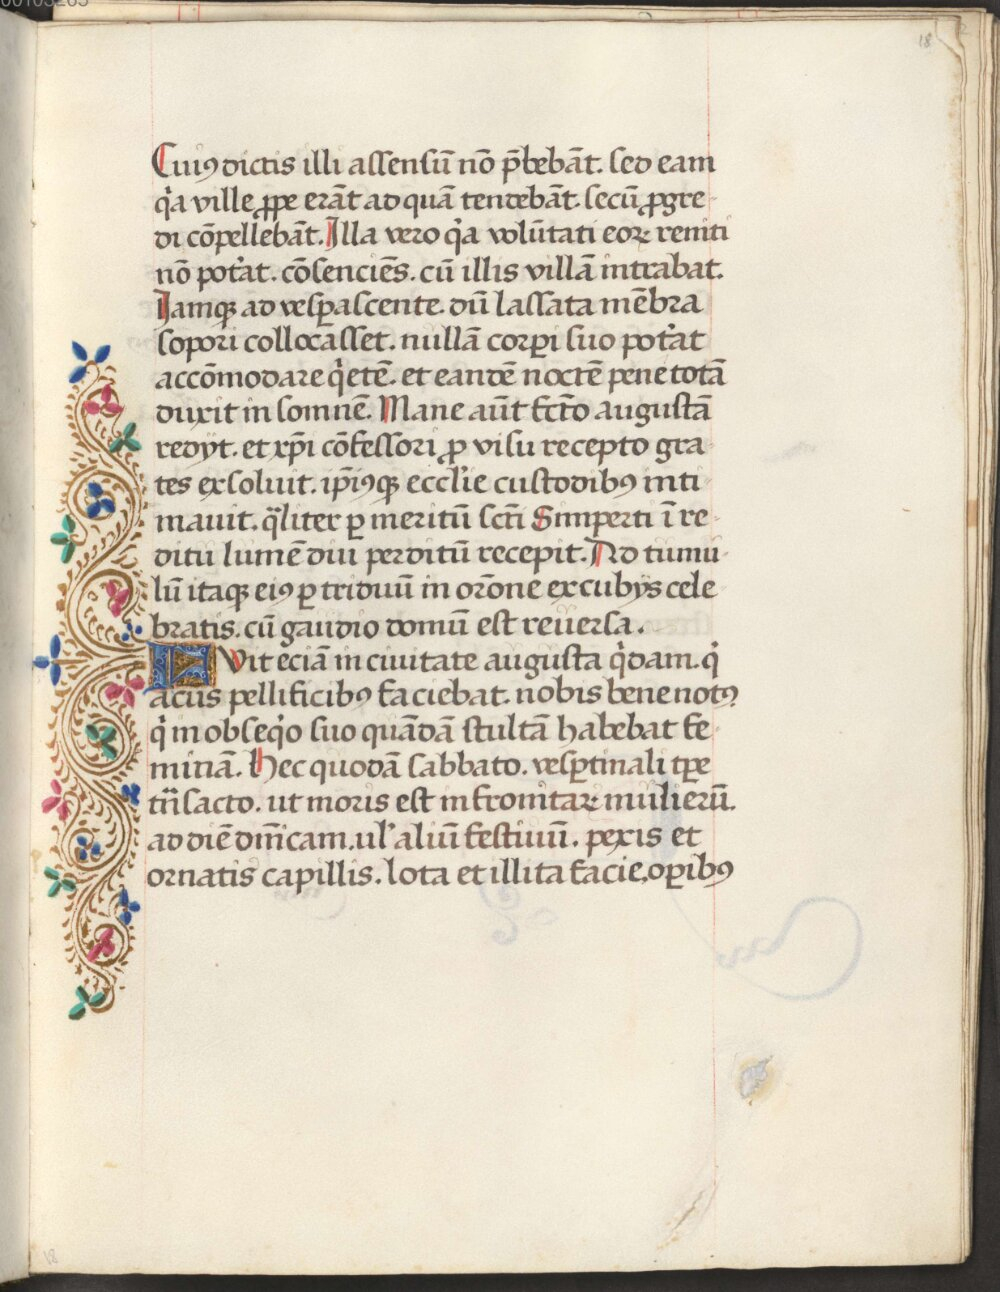 00103265
18
Cuiꝯ dictis illi assensū nō p̄bebāt. sed eam
q̇a ville ꝓpe erāt ad quā tendebāt. secū ꝓgre-
di cōpellebāt. Illa vero q̇a volūtati eoꝝ reniti
nō pot̾at. cōsenciēs. cū illis villā intrabat.
Iamqꝫ advesꝑascente. dū lassata mēbra
sopori collocasset. nullā corꝑi suo pot̾at
accōmodare q̇etē. et eandē noctē pene totā
duxit insomnē. Mane aūt fcto augustā
redyt. et xp̄i cōfessori ꝓ visu recepto gra-
tes exsoluit. ip̄iꝯqꝫ ecclīe custodibꝯ inti-
mauit. q̄liter ꝑ meritū scti Simperti ī re-
ditu lumē diu perditū recepit. Ad tumu-
lū itaqꝫ eiꝯ ꝑ triduū in orōne excubÿs cele-
bratis. cū gaudio domū est reuersa.
Fvit eciā in ciuitate augusta q̇dam. q̇
acus pellificibꝯ faciebat. nobis bene notꝯ.
q̇ in obseq̇o suo quādā stultā habebat fe-
minā. Hec quodā sabbato. vesꝑtinali tꝑe
tn̄sacto. ut moris est infronitaꝝ mulierū.
ad diē dn̄icam. ul' aliū festiuū. pexis et
ornatis capillis. lota et illita facie, oꝑibꝯ
18